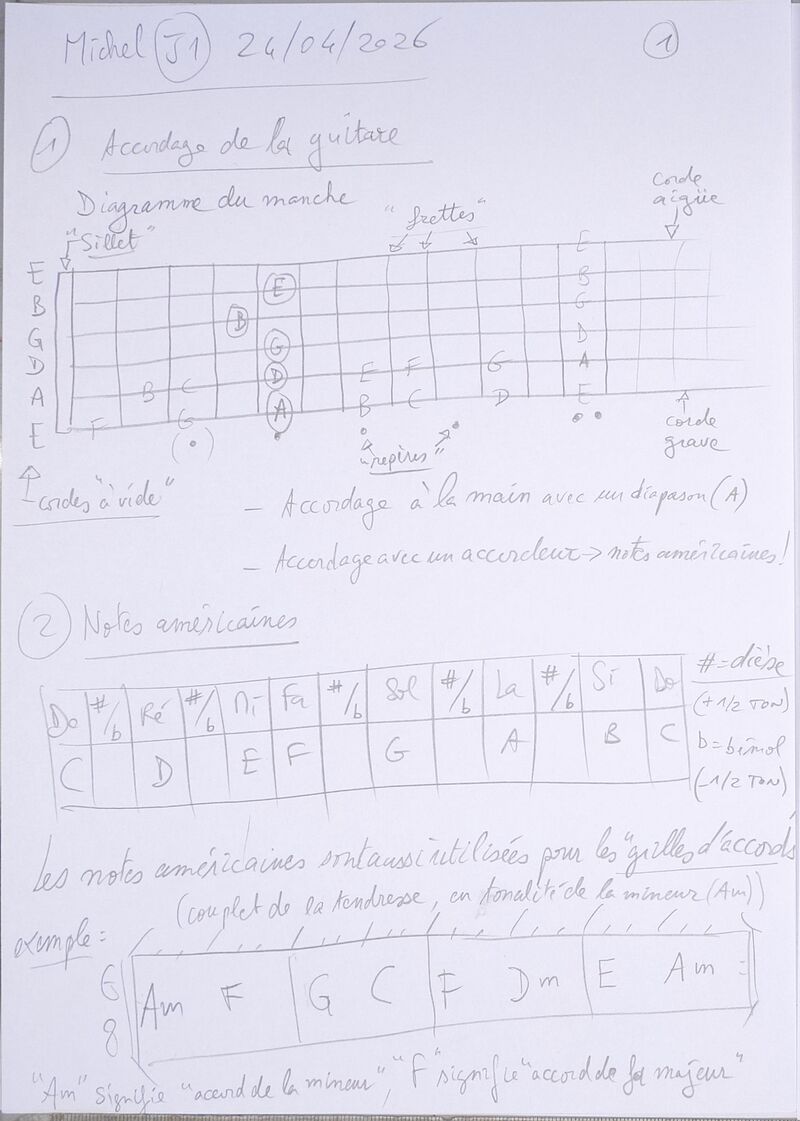 Michel J1 24/04/2026 1
1 Accordage de la guitare
Diagramme du manche
"Sillet" "frettes" corde aigüe
E E
B E B
G B G
D G D
A B C D E F G A
E F G A B C D E
"repères" corde grave
cordes "à vide"
- Accordage à la main avec un diapason (A)
- Accordage avec un accordeur → notes américaines!
2 Notes américaines
Do #/b Ré #/b Mi Fa #/b Sol #/b La #/b Si Do
C D E F G A B C
# = dièse
(+1/2 TON)
b = bémol
(-1/2 TON)
Les notes américaines sont aussi utilisées pour les "grilles d'accords
(couplet de la tendresse, en tonalité de la mineur (Am))
exemple:
6
8
Am F G C F Dm E Am
"Am" signifie "accord de la mineur", "F" signifie "accord de fa majeur"